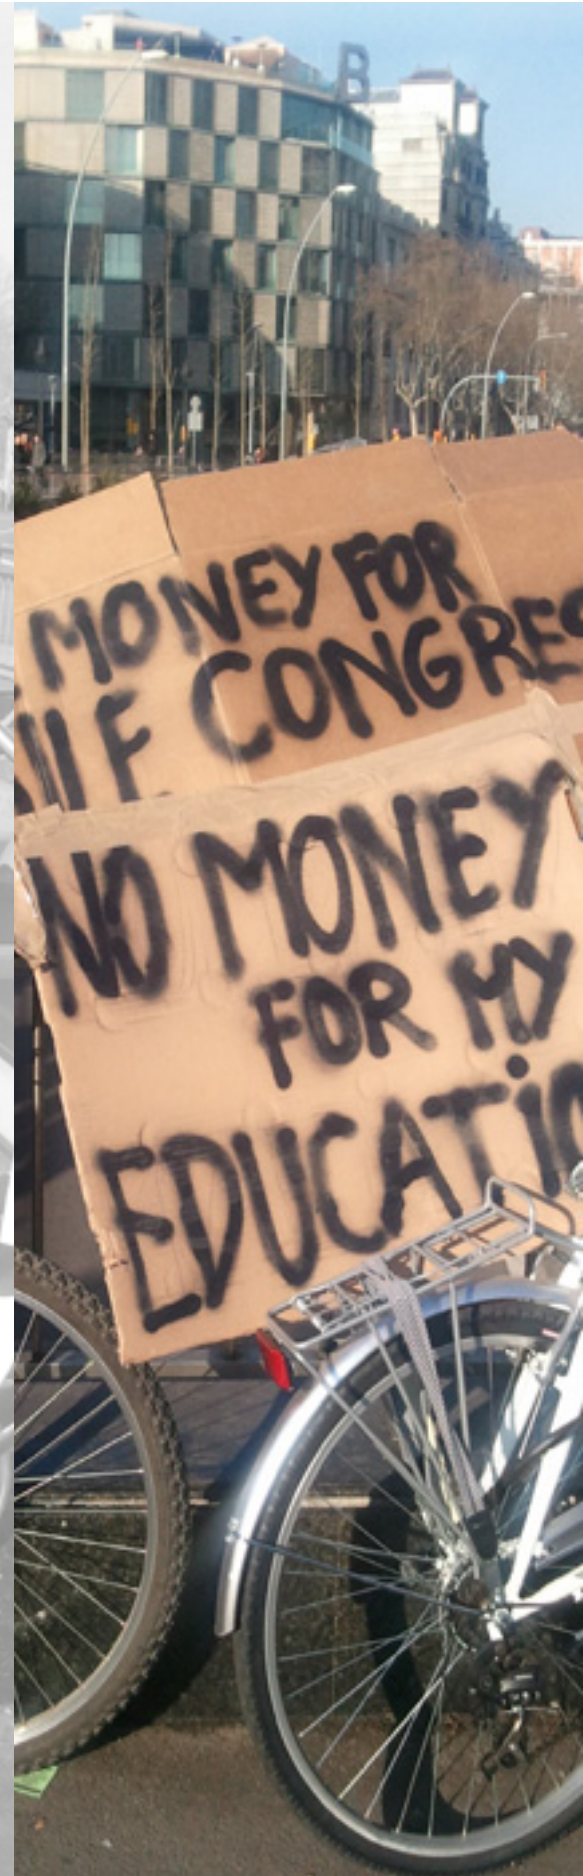 B
MONEY FOR
CONGRES
NO MONEY
FOR MY
EDUCATIO